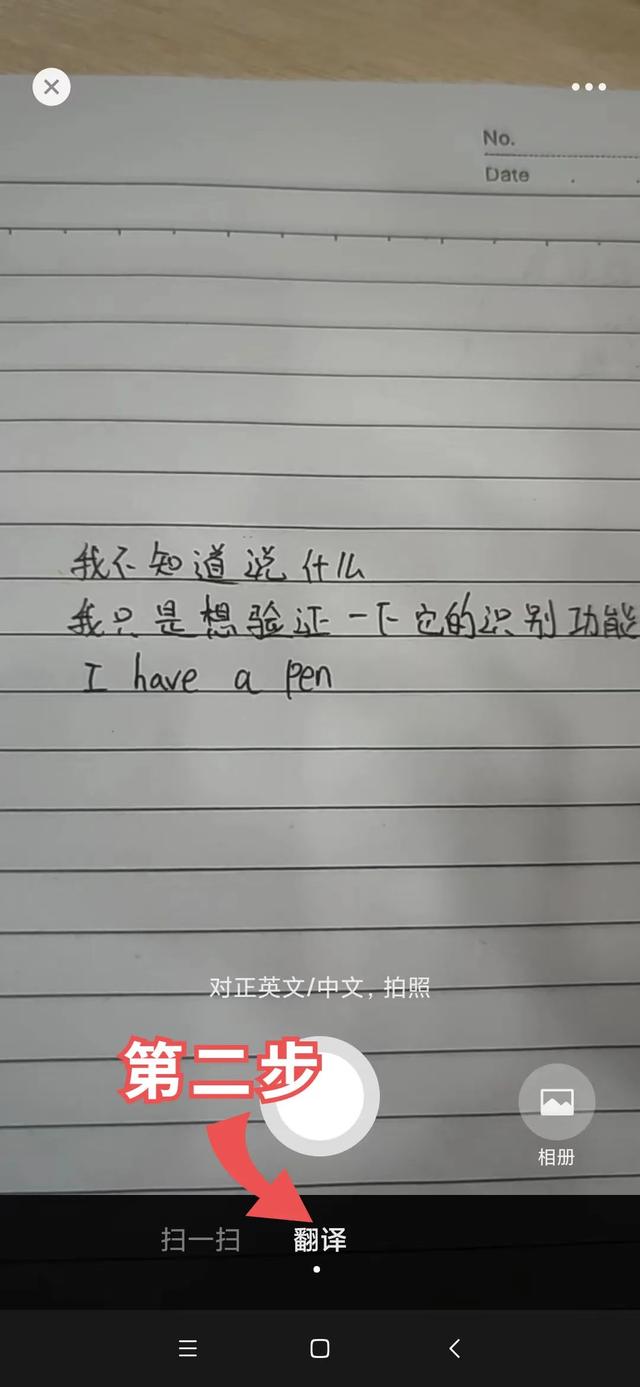 No.
Date
我不知道说什么
我只是想验证一下它的识别功能
I have a pen
对正英文/中文，拍照
第二步
相册
扫一扫 翻译